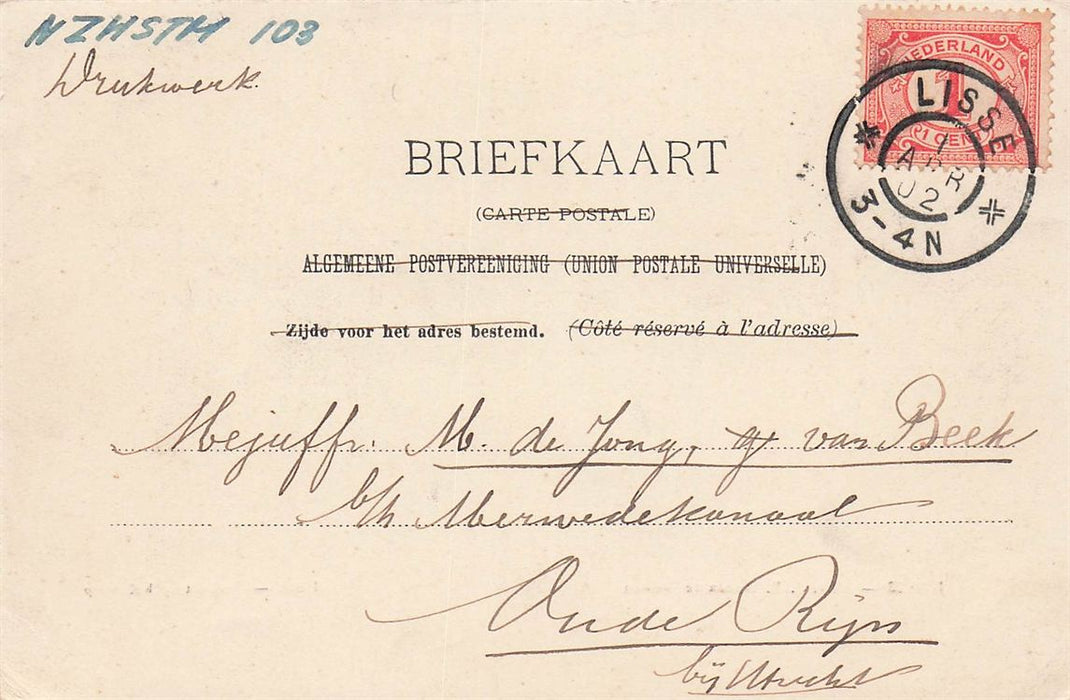 NZHSTM 103
Drukwerk.
NEDERLAND
1
1 CENT
LISSE
1
APR
02
3-4N
BRIEFKAART
(CARTE POSTALE)
ALGEMEENE POSTVEREENIGING (UNION POSTALE UNIVERSELLE)
Zijde voor het adres bestemd. (Côté réservé à l'adresse)
Mejuffr. M. de Jong, van Beek
b/h Merwedekanaal
Oude Rijn
bij Utrecht